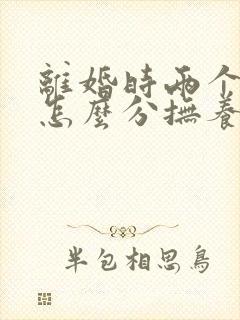 離婚時兩个
怎麼分撫養
半包相思鳥